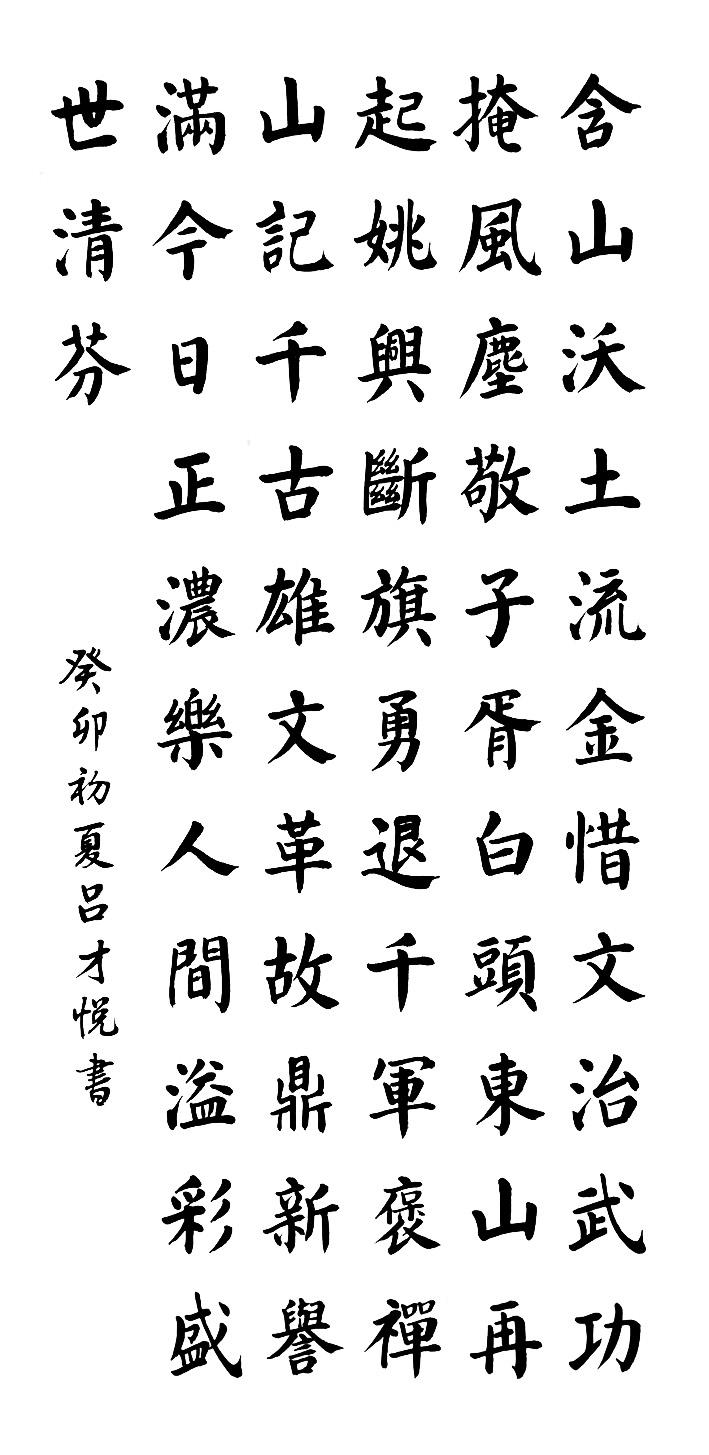 含山沃土流金惜文治武功
掩風塵敬子胥白頭東山再
起姚興斷旗勇退千軍褒禪
山記千古雄文革故鼎新譽
滿今日正濃樂人間溢彩盛
世清芬
癸卯初夏呂才悅書